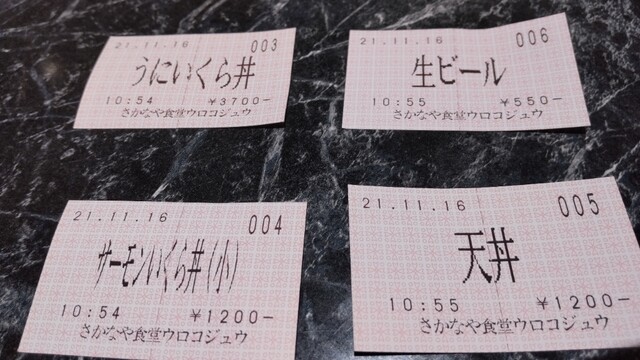 21.11.16 003
うにいくら丼
10:54 ¥3700-
さかなや食堂ウロコジュウ
21.11.16 006
生ビール
10:55 ¥550-
さかなや食堂ウロコジュウ
21.11.16 004
サーモンいくら丼(小)
10:54 ¥1200-
さかなや食堂ウロコジュウ
21.11.16 005
天丼
10:55 ¥1200-
さかなや食堂ウロコジュウ